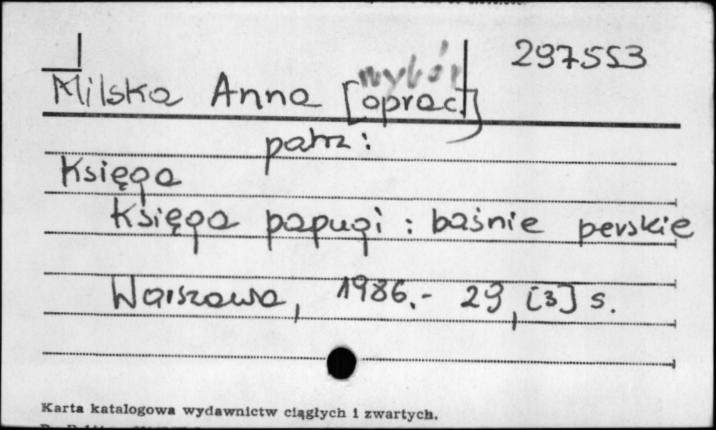 wybór 297553
Milska Anna [oprac.]
patrz:
Księga
Księga papugi : baśnie perskie
Warszawa, 1986.- 29, [3] s.
Karta katalogowa wydawnictw ciągłych i zwartych.